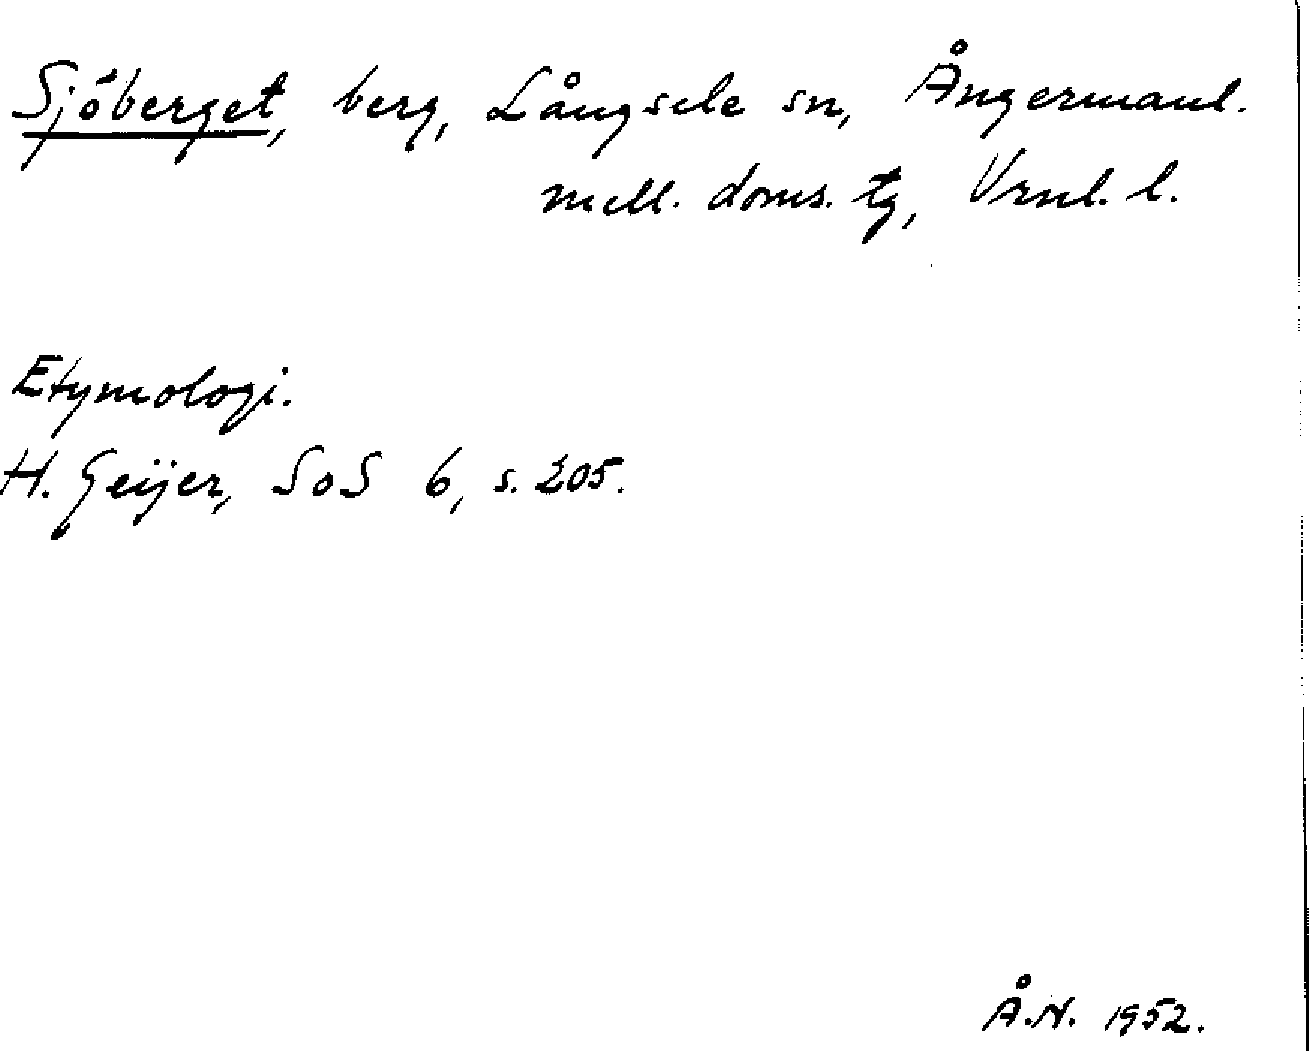 Sjöberget, berg, Långsele sn, Ångermanl.
mell. doms. tg, Vrnl. l.
Etymologi.
H. Geijer, SoS 6, s. 205.
Å.N. 1952.